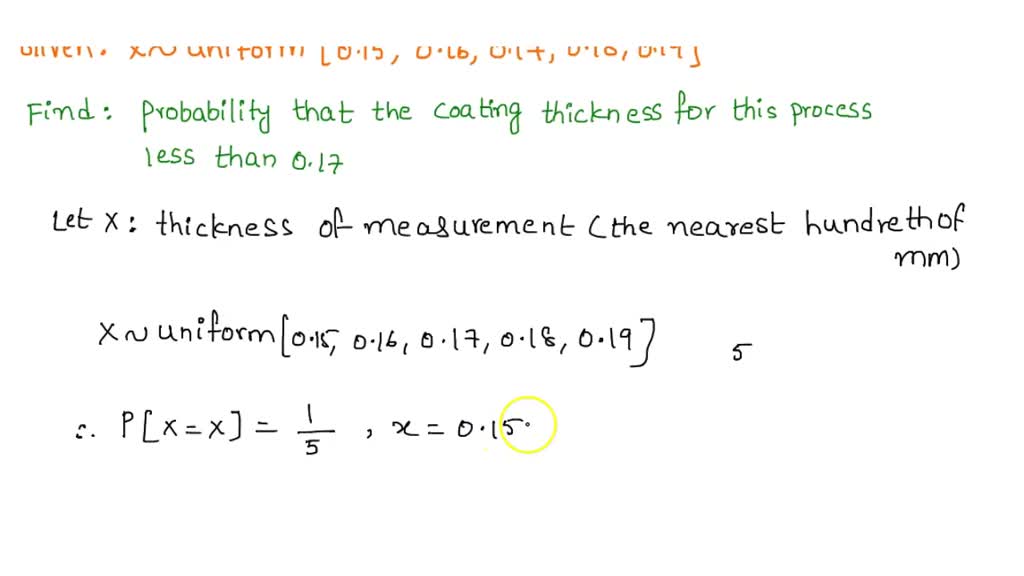 Given: X~ uniform [0.15, 0.16, 0.17, 0.18, 0.19]
Find: Probability that the coating thickness for this process
less than 0.17
Let X: thickness of measurement (the nearest hundreth of
mm)
X~ uniform [0.15, 0.16, 0.17, 0.18, 0.19] 5
∴ P[X=x] = 1/5 , x = 0.15